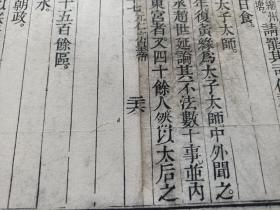 請罷其
日食。
太子太師。
年復夤緣爲太子太師中外聞之
丞趙世延論其不法數十事並內
東宮者又四十餘人然以太后之
朝政。
十五百餘區。
水